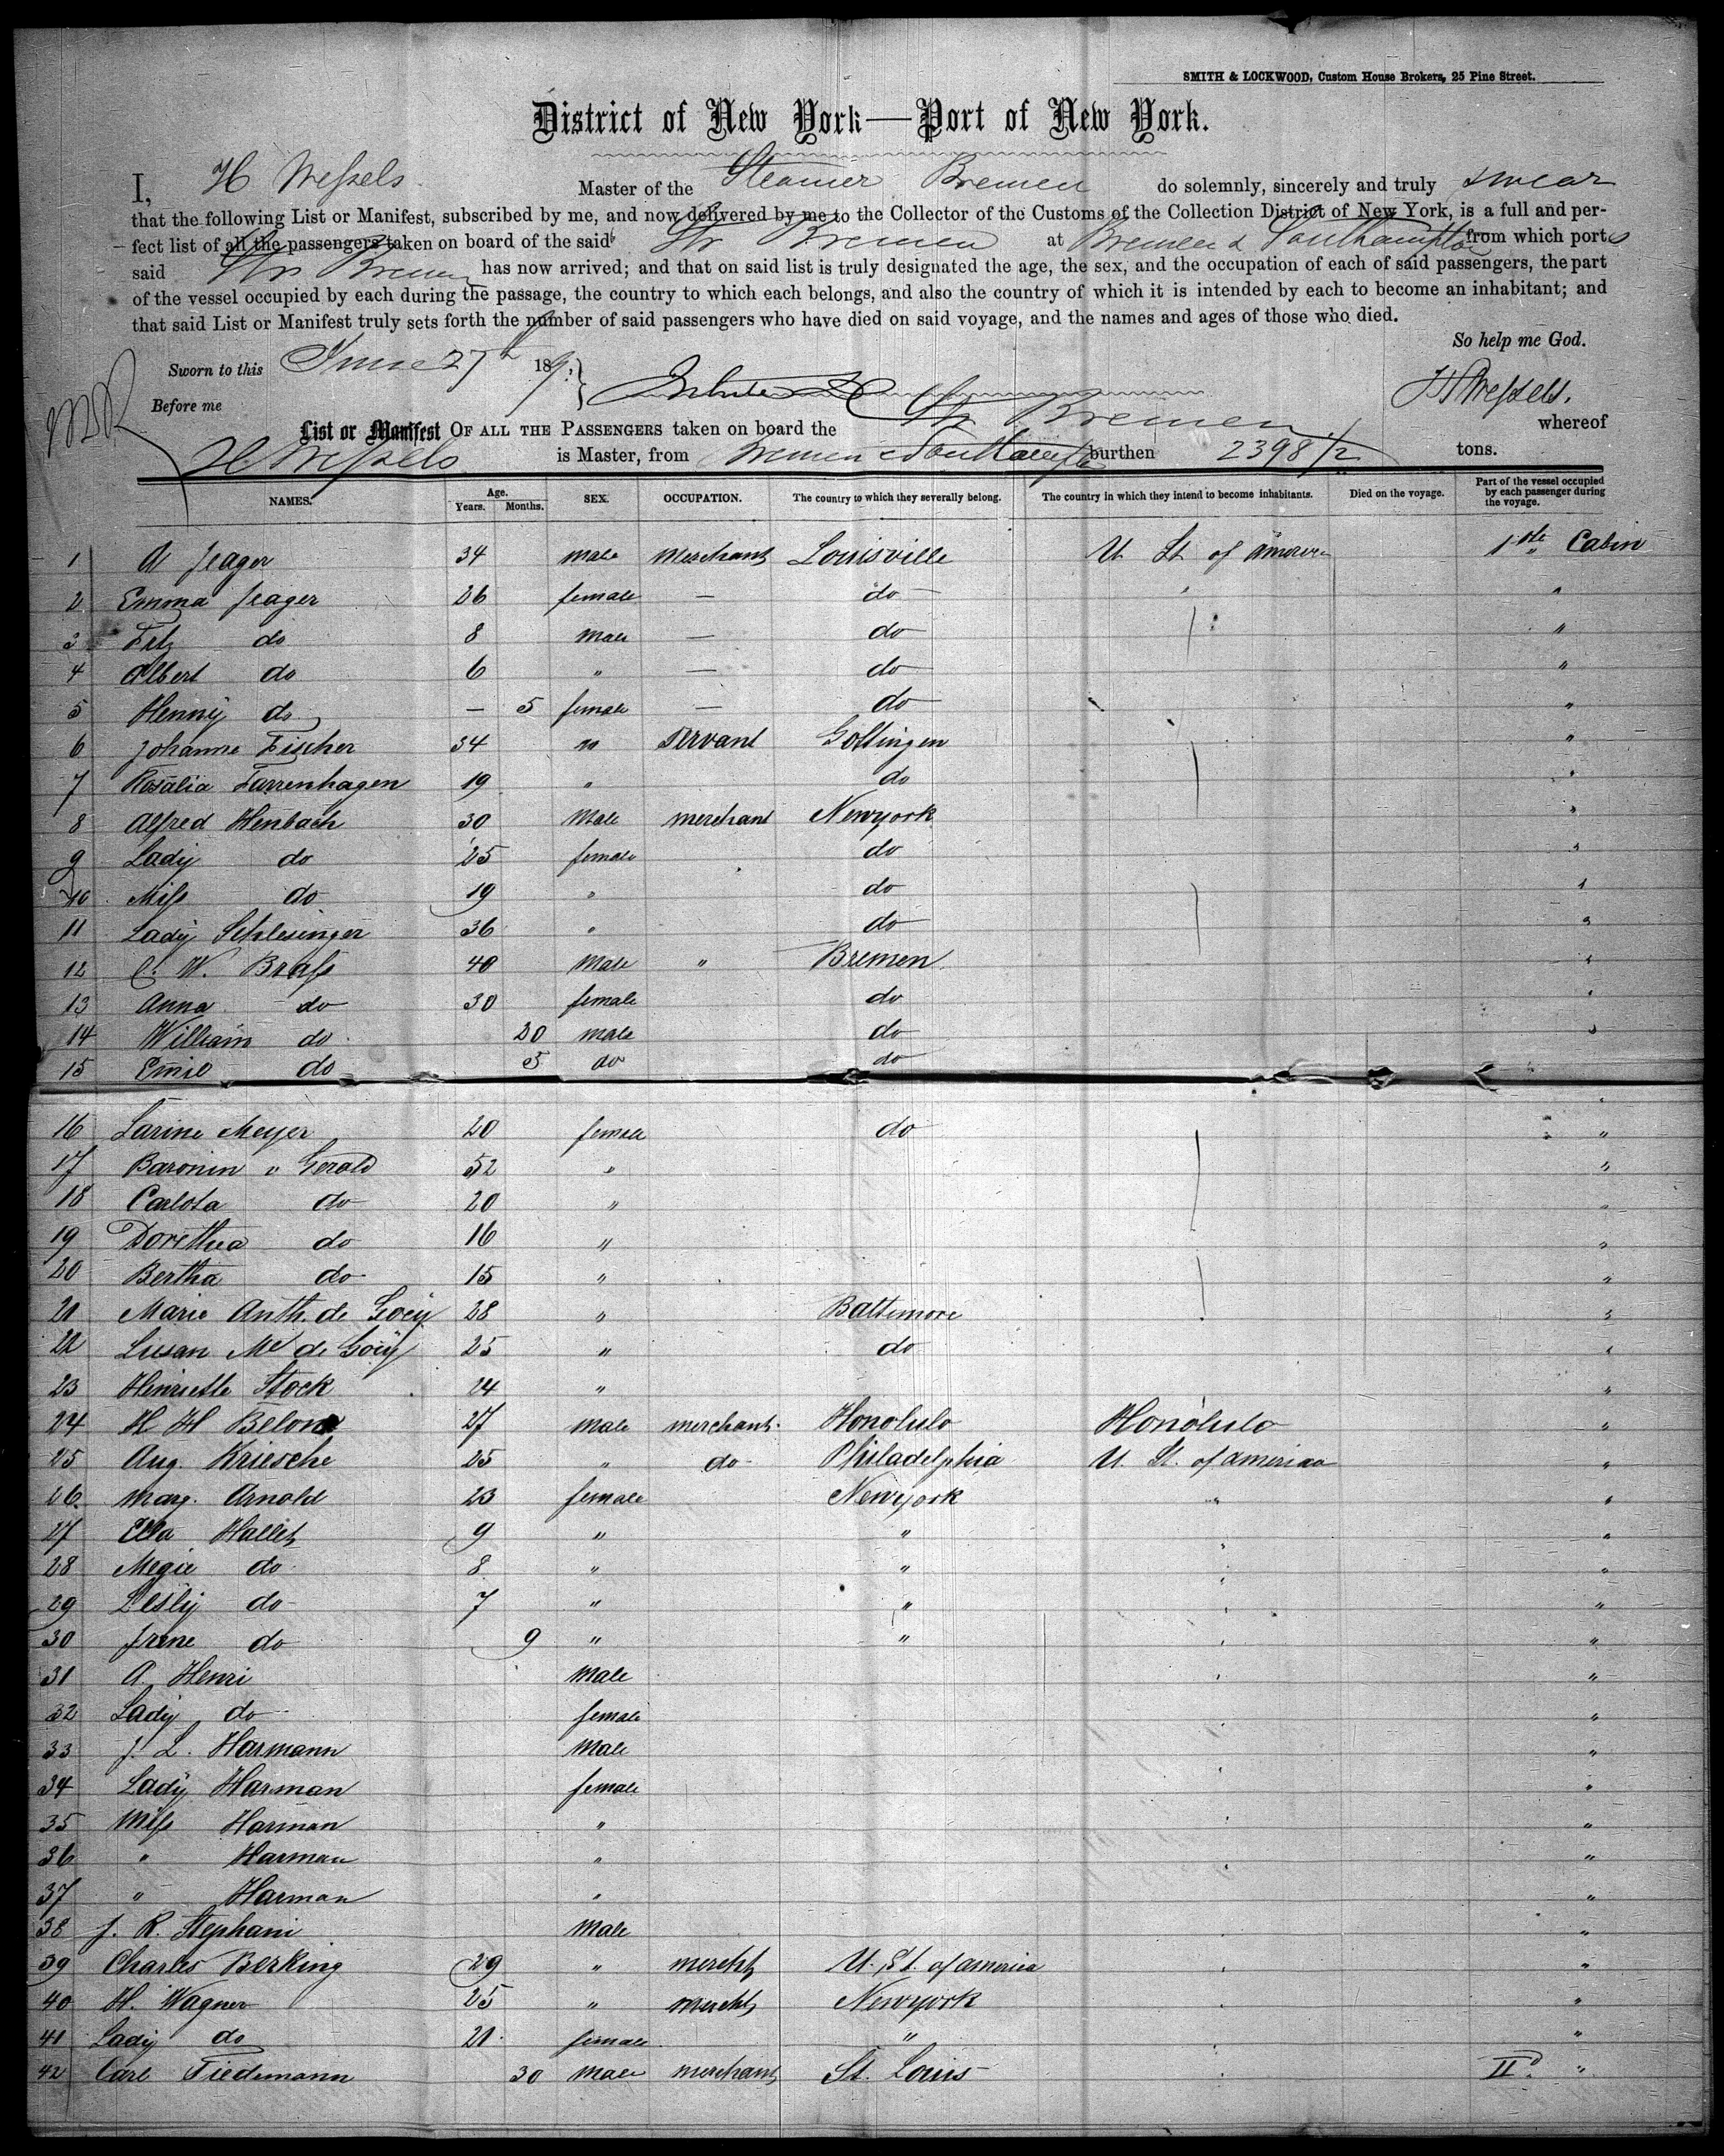 SMITH & LOCKWOOD, Custom House Brokers, 25 Pine Street.
District of New York—Port of New York.
I, H Wessels Master of the Steamer Bremen do solemnly, sincerely and truly swear
that the following List or Manifest, subscribed by me, and now delivered by me to the Collector of the Customs of the Collection District of New York, is a full and per-
fect list of all the passengers taken on board of the said Str Bremen at Bremen & Southampton from which ports
said Str Bremen has now arrived; and that on said list is truly designated the age, the sex, and the occupation of each of said passengers, the part
of the vessel occupied by each during the passage, the country to which each belongs, and also the country of which it is intended by each to become an inhabitant; and
that said List or Manifest truly sets forth the number of said passengers who have died on said voyage, and the names and ages of those who died.
So help me God.
Sworn to this June 27th 18
Before me
H Wessels.
List or Manifest OF ALL THE PASSENGERS taken on board the Str Bremen whereof
H. Wessels is Master, from Bremen & Southampton burthen 2398 1/2 tons.
NAMES. Age. Years. Months. SEX. OCCUPATION. The country to which they severally belong. The country in which they intend to become inhabitants. Died on the voyage. Part of the vessel occupied by each passenger during the voyage.
1 A Jeager 34 male merchant Louisville U St of America 1ste Cabin
2 Emma Jeager 26 female — do — "
3 Fitz do 8 male — do "
4 Albert do 6 " — do "
5 Henny do — 5 female — do "
6 Johanne Fischer 34 " servant Gottingen "
7 Rosalia Farrenhagen 19 " do "
8 Alfred Henbach 30 male merchant Newyork "
9 Lady do 25 female do "
10 Miss do 19 " do "
11 Lady Schlesinger 36 " do "
12 C. W. Brass 40 male " Bremen "
13 Anna do 30 female do "
14 William do 20 male do "
15 Emil do 5 do do
16 Larine Meyer 20 female do "
17 Baronin v Gerold 52 " "
18 Carlota do 20 " "
19 Dorethea do 16 " "
20 Bertha do 15 " "
21 Marie Anth. de Goey 28 " Baltimore "
22 Susan Me de Goey 25 " do "
23 Henriette Stock 24 " "
24 H H Belon 27 male merchant Honolulo Honolulo "
25 Aug. Kriesche 25 " do Philadelphia U. St. of America "
26 Marg. Arnold 23 female Newyork " "
27 Ella Hallet 9 " " " "
28 Megie do 8 " " " "
29 Lesly do 7 " " " "
30 Irene do 9 " " " "
31 A. Henri male " "
32 Lady do female " "
33 J. L. Harmann male "
34 Lady Harman female " "
35 Miss Harman " " "
36 " Harman " " "
37 " Harman " "
38 J. R. Stephani male " "
39 Charles Berking 29 " mercht U. St. of America " "
40 H. Wagner 25 " mercht Newyork " "
41 Lady do 21 female " "
42 Carl Tiedemann 30 male merchant St. Louis " IId "